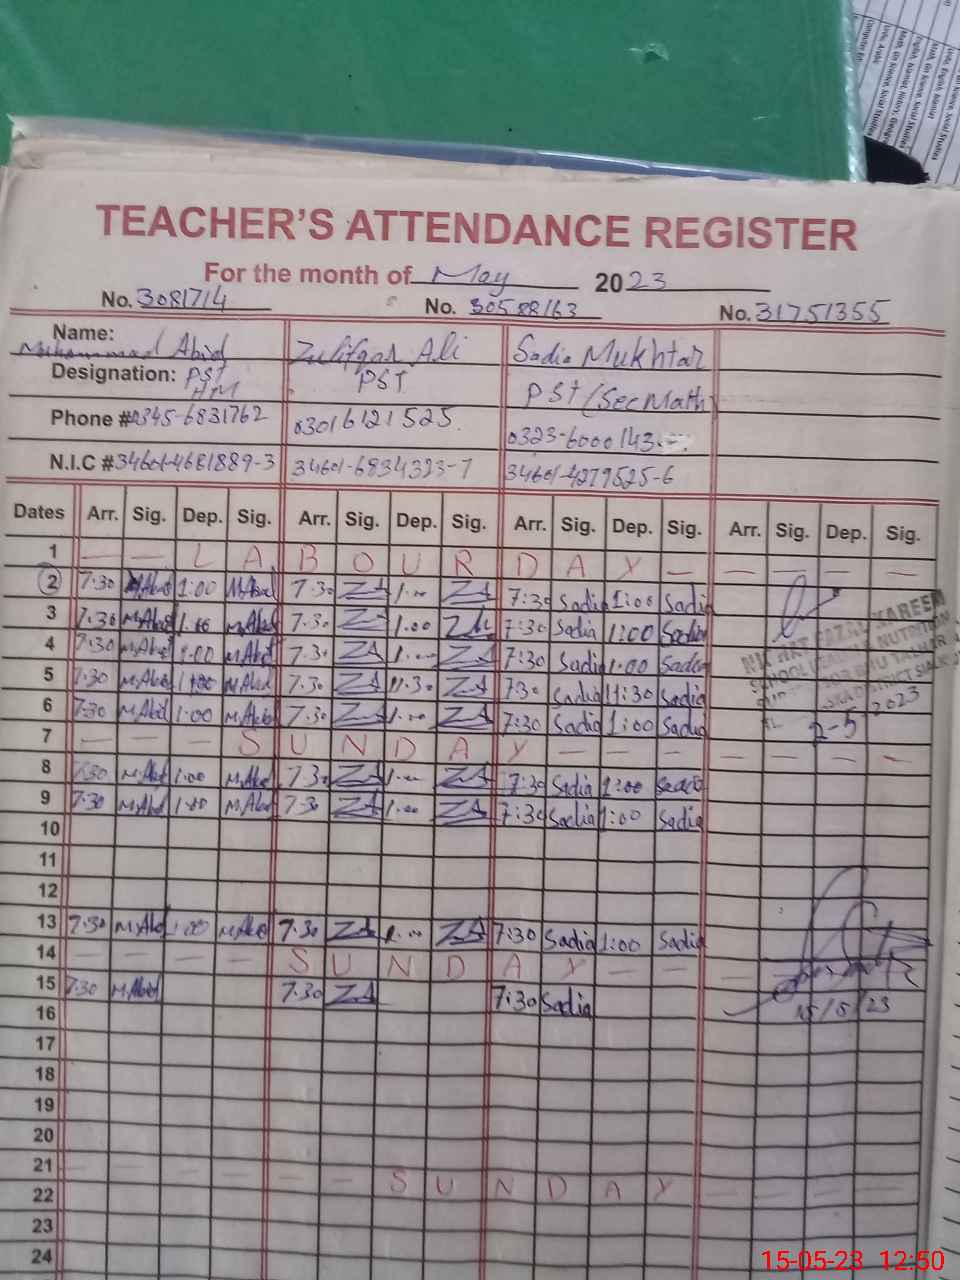 TEACHER'S ATTENDANCE REGISTER
For the month of May 2023
No. 3081714 No. 30588163 No. 31751355
Name: Muhammad Abid Zulifqar Ali Sadia Mukhtar
Designation: PST HM PST PST (Sec Math)
Phone # 0345-6831762 03016121525 0323-6000143
N.I.C # 34601-4681889-3 34601-6834323-7 34601-4279525-6
Dates Arr. Sig. Dep. Sig. Arr. Sig. Dep. Sig. Arr. Sig. Dep. Sig. Arr. Sig. Dep. Sig.
1 — — L A B O U R D A Y — — — — —
2 7.30 M.Abid 1:00 M.Abid 7.30 ZA 1.00 ZA 7:30 Sadia 1:00 Sadia
3 7.30 M.Abid 1.00 M.Abid 7.30 ZA 1.00 ZA 7:30 Sadia 1:00 Sadia
4 7.30 M.Abid 1.00 M.Abid 7.30 ZA 1.00 ZA 7:30 Sadia 1:00 Sadia
5 7.30 M.Abid M.Abid 7.30 ZA 11.30 ZA 730 Sadia 11:30 Sadia
6 7.30 M.Abid 1.00 M.Abid 7.30 ZA 1.00 ZA 7:30 Sadia 1:00 Sadia
KAREEM
SCHOOL NUTRITION
BHU
DISTRICT
2-5 2023
7 — — — S U N D A Y — — — — — — —
8 7.30 M.Abid 1.00 M.Abid 7.30 ZA 1.00 ZA 7:30 Sadia 1:00 Sadia
9 7.30 M.Abid 1.00 M.Abid 7.30 ZA 1.00 ZA 7:30 Sadia 1:00 Sadia
10
11
12
13 7.30 M.Abid 1.00 M.Abid 7.30 ZA 1.00 ZA 7:30 Sadia 1:00 Sadia
14 — — — — S U N D A Y — —
15 7.30 M.Abid 7.30 ZA 7:30 Sadia
15/5/23
16
17
18
19
20
21 — — — — — — S U N D A Y — — — —
22
23
24
15-05-23 12:50